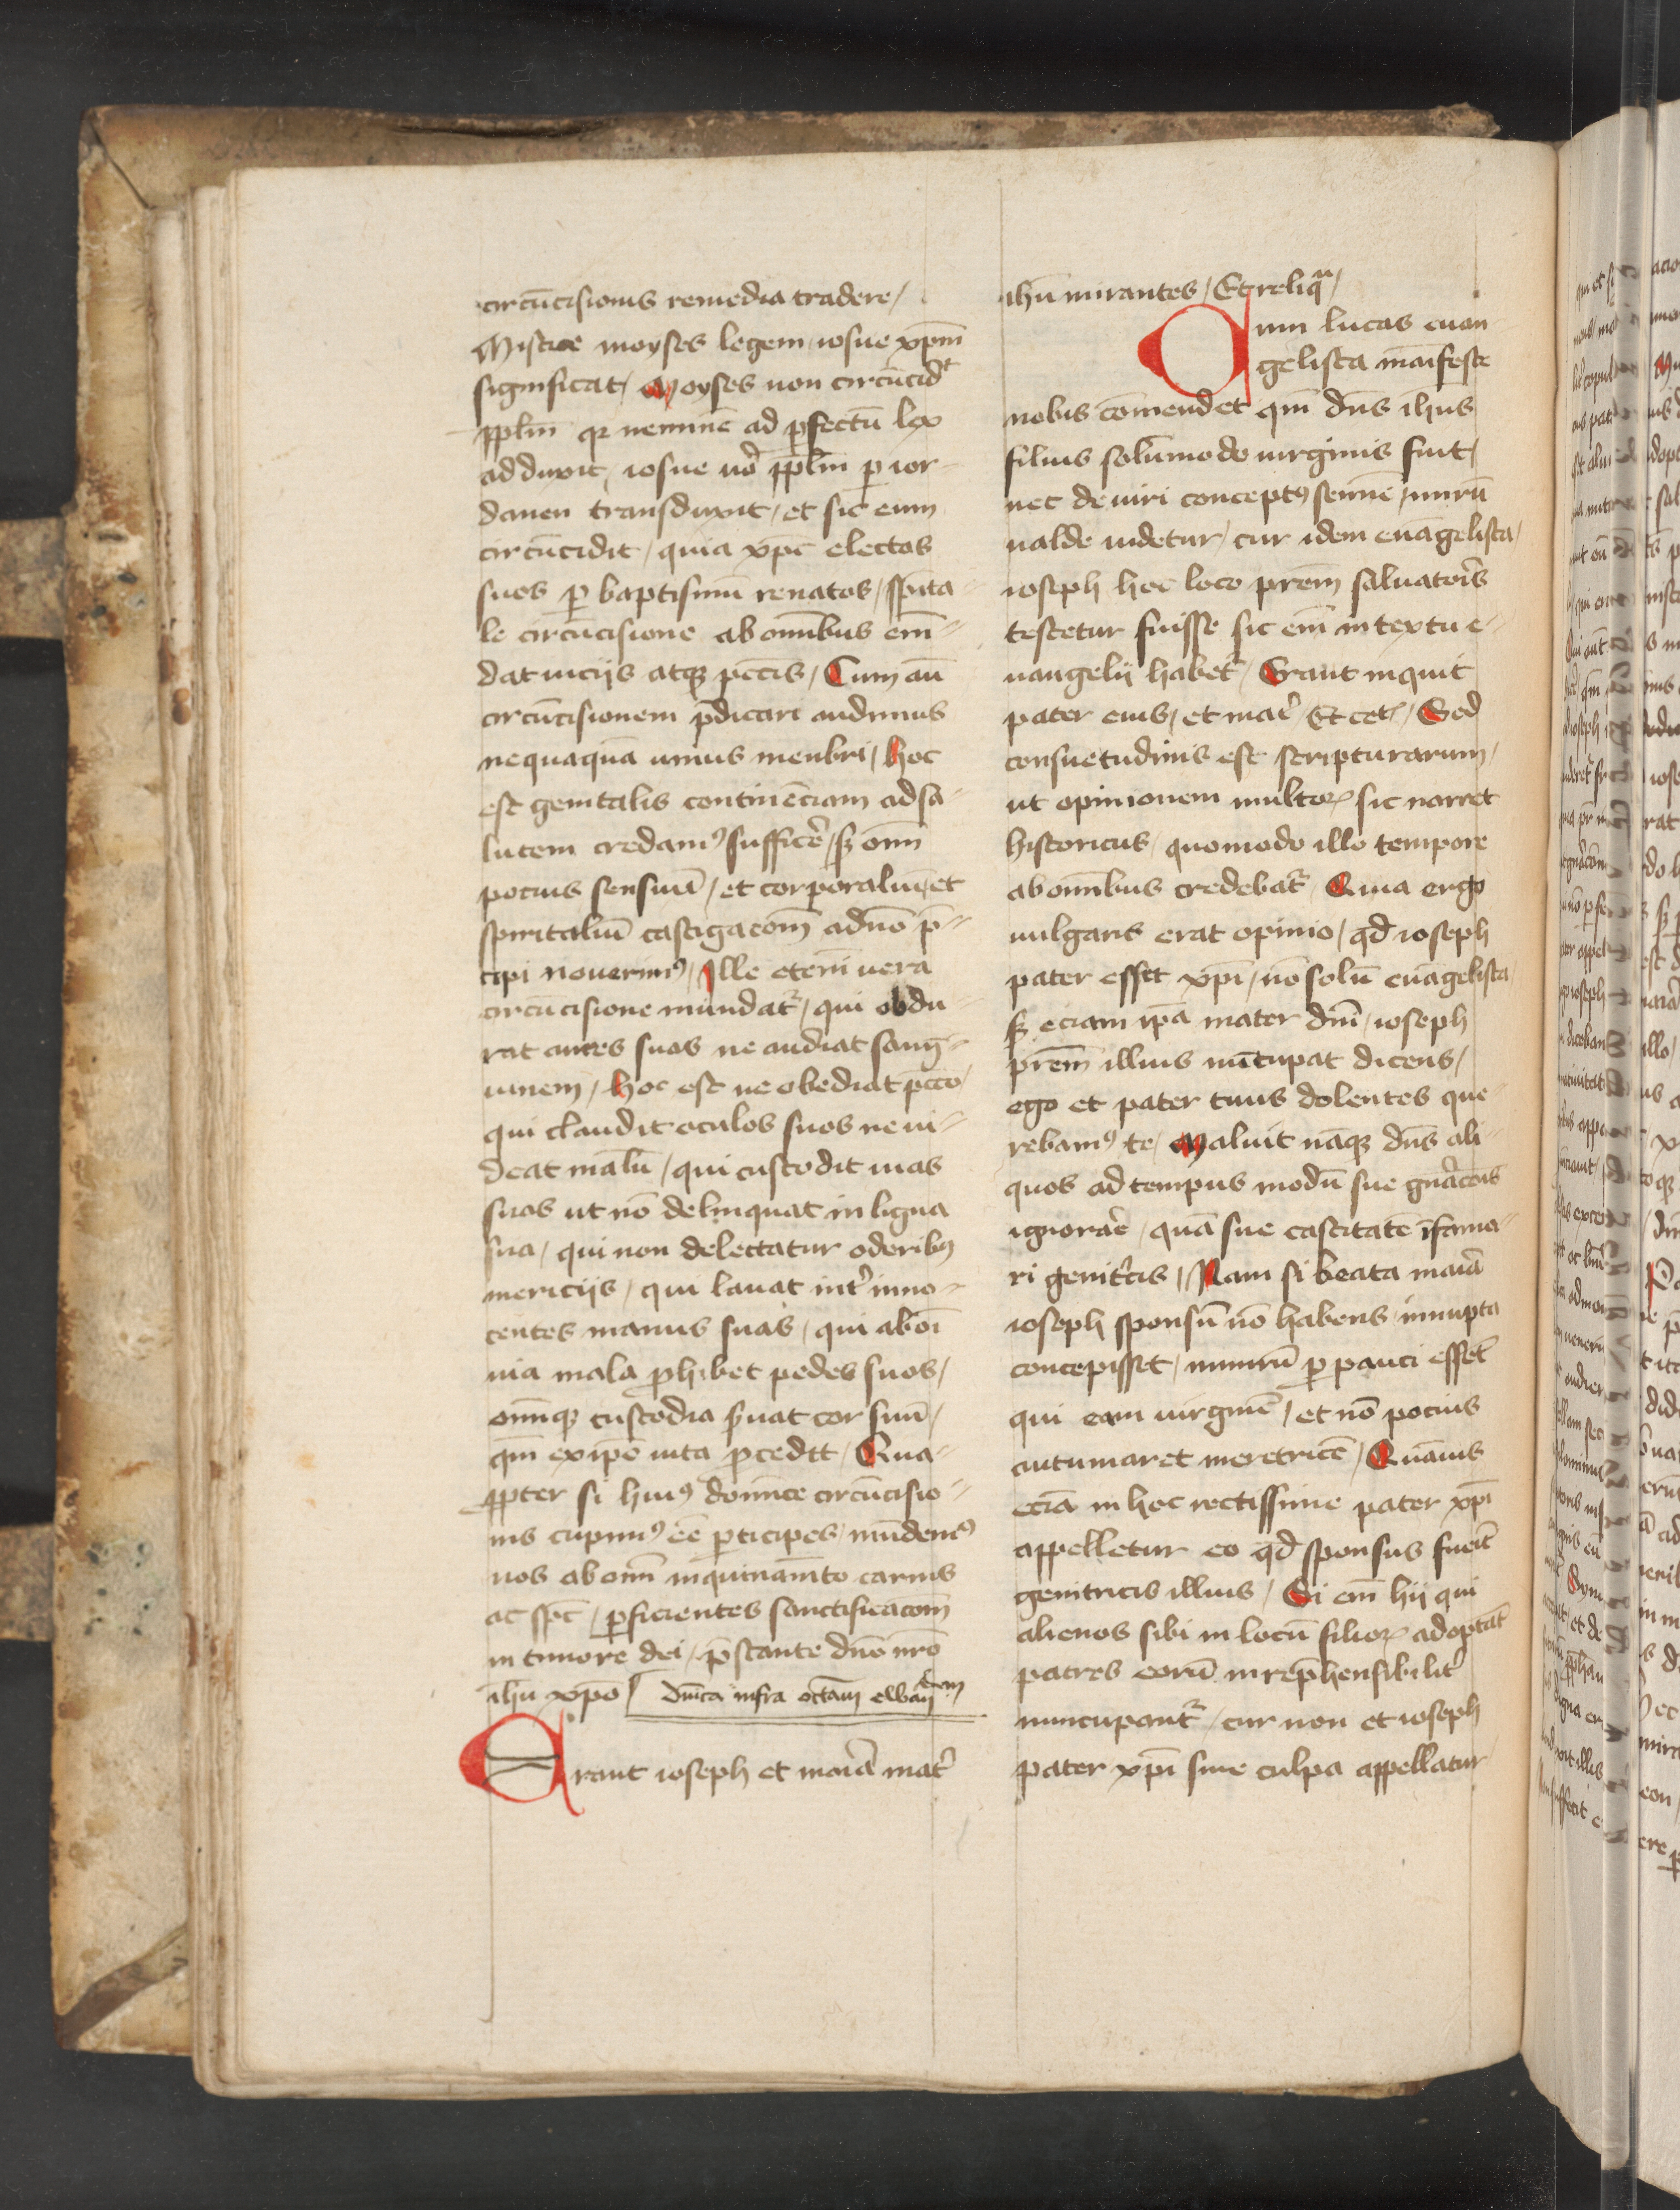 circūcisionis remedia tradere /
Mistice moyses legem / iosue xpm̄
significat / Moyses non circūcidt
pplm̄ qr neminē ad pfectū lex
adduxit / iosue uō pplm̄ p ior-
danen transduxit / et sic eum
circūcidit / quia xpc electos
suos p baptismū renatos / spirta-
le circūcisione ab omībus emū-
dat uicijs atqз pcc̄is / Cum aū
circūcisionem p̄dicari audimus
nequaquā unius menbri / hoc
est genitalis continēciam ad sa-
lutem credamꝰ sufficē / sз oīm
pocius sensuū / et corporaliū et
spiritaliū castigacōm̄ a dnō p̄-
cipi nouerimꝰ / Ille etenī uera
circūcisione mundat᷑ / qui obdu-
rat aures suas ne audiat sang-
uinem / hoc est ne obediat pcc̄o /
qui claudit oculos suos ne ui-
deat malū / qui custodit uias
suas ut nō delinquat in ligna
sua / qui non delectatur oderibꝰ
mericijs / qui lauat int̓ inno-
centes manus suas / qui ab oī
uia mala phibet pedes suos /
omīqз custodia suat cor suū /
qm̄ ex ipō uita pcedtt / Qua-
ppter si huiꝰ domīce circūcisio-
nis cupimꝰ eē pticipes / mūdemꝰ
nos ab omī inquinamīto carnis
ac spc / pficientes sanctificacōm̄
in timore dei / p̄stante dnō nrō
ihu xpo / Dn̄ica infra octam̄
Erant ioseph et maiā mat̓
ihū mirantes / Et reliqa /
Qum lucas euan-
gelista maīfeste
nobis cōmendet qm̄ dn̄s ihus
filius solūmodo uirginis fuit /
nec de uiri conceptꝰ semīe / mirū
ualde uidetur / cur idem euāgelista /
ioseph hoc loco prēm saluatoris
testetur fuisse sic em̄ in textu e-
uangelij habet᷑ / Erant inquit
pater eius / et mat̓ / Et cet̓ / Sed
consuetudinis est scripturarum /
ut opinionem multoꝝ sic narret
historicus / quomodo illo tempore
ab omībus credebat᷑ / Quia ergo
uulgaris erat opinio / qd ioseph
pater esset xpi / nō solū euāgelista /
sз eciam ipā mater dnī / ioseph
prēm illius nūcupat dicens /
ego et pater tuus dolentes que-
rebamꝰ te / Maluit nāqз dn̄s ali-
quos ad tempus modū sue gnācōis
ignorar̄e / quā sue castitatē īfama-
ri genit̓cis / Nam si beata maiā
ioseph sponsū nō habens innupta
concepisset / nimirū p pauci esset̄
qui eam uirginē / et nō pocius
autumaret meretricē / Quāuis
eciā in hoc rectissime pater xpi
appelletur eo qd sponsus fuīt
genitricis illius / Si em̄ hij qui
alienos sibi in locū filioꝝ adoptāt
patres eorū inrep̄hensibilit̓
nuncupant᷑ / cur non et ioseph
pater xpi sine culpa appellatur